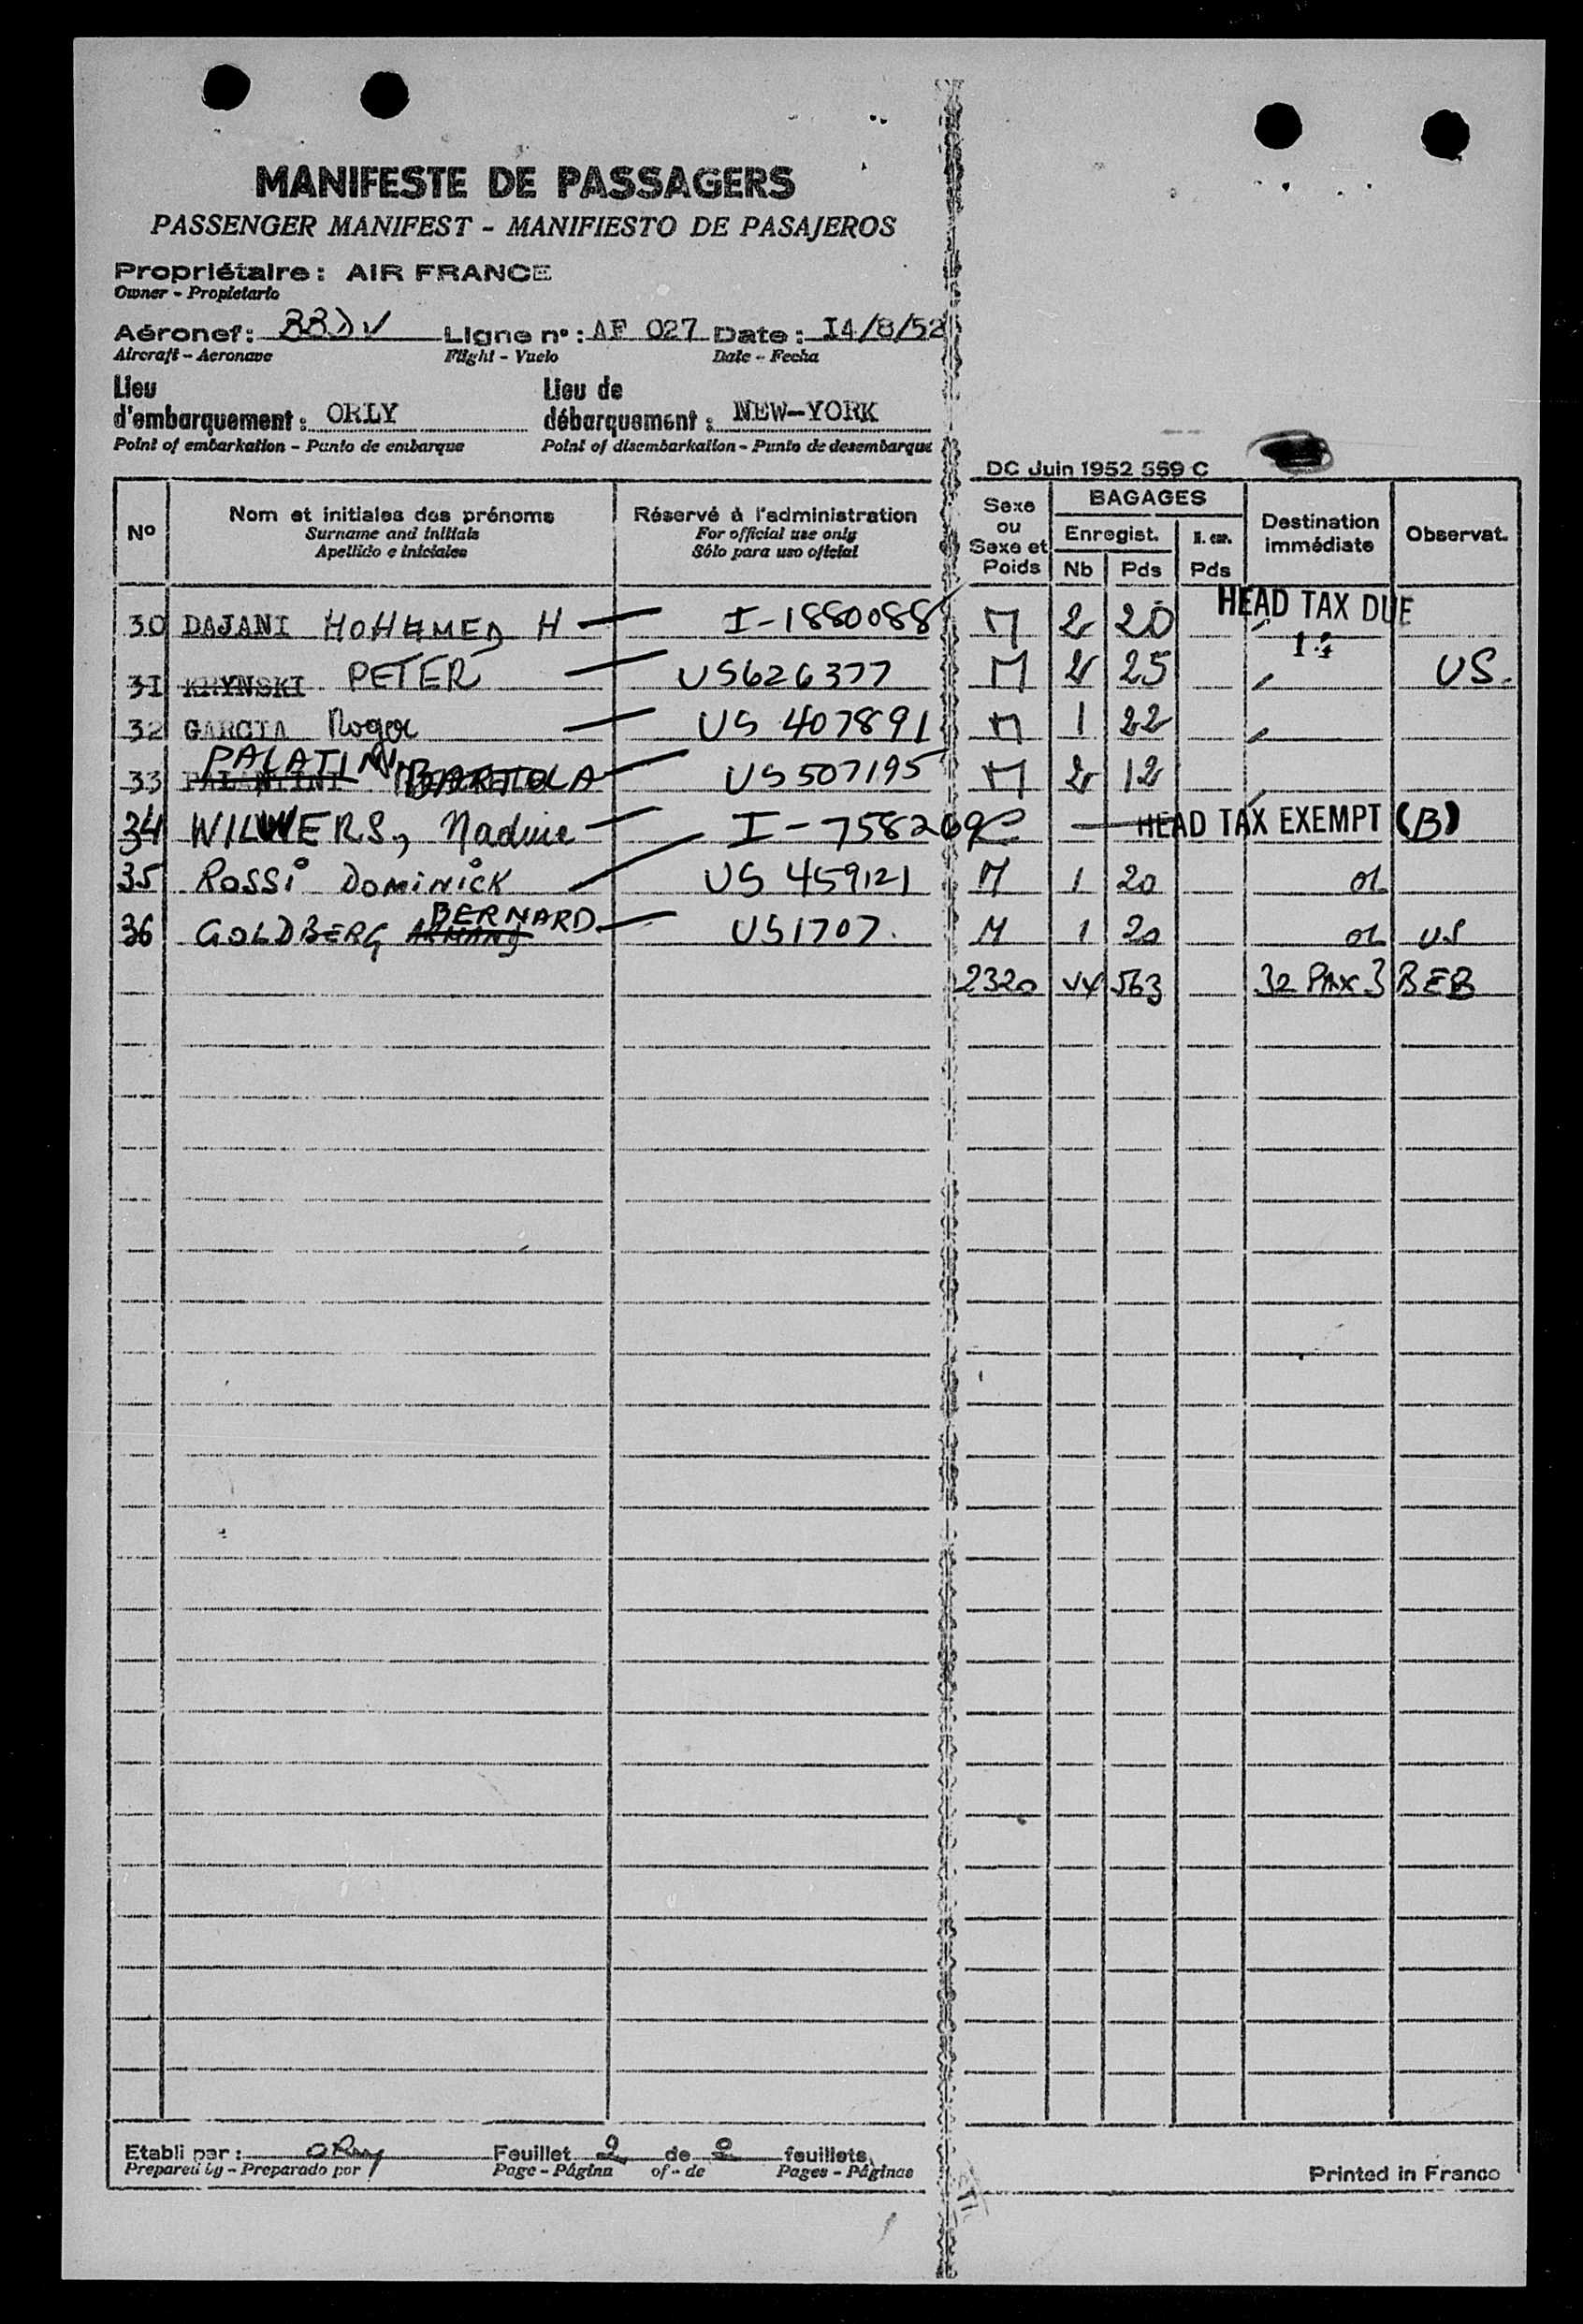 MANIFESTE DE PASSAGERS
PASSENGER MANIFEST - MANIFIESTO DE PASAJEROS
Propriétaire : AIR FRANCE
Owner - Propietario
Aéronef : Ligne n° : AF 027 Date : I4/8/52
Aircraft - Aeronave Flight - Vuelo Date - Fecha
Lieu d'embarquement : ORLY Lieu de débarquement : NEW-YORK
Point of embarkation - Punto de embarque Point of disembarkation - Punto de desembarque
DC Juin 1952 559 C
N° Nom et initiales des prénoms Réservé à l'administration Sexe ou Sexe et Poids BAGAGES Destination immédiate Observat.
Surname and initials For official use only Enregist.
Apellido e iniciales Sólo para uso oficial Nb Pds Pds
HEAD TAX DUE
30 DAJANI MOHAMED H I-1880088 M 2 20
3I KRYNSKI PETER US626377 M 2 25 US.
32 GARCIA Roger US 407891 M 1 22
33 PALATINI BARTOLA US 507195 M 2 12
34 WILWERS, Nadine I-758269 HEAD TAX EXEMPT (B)
35 ROSSI DOMINICK US 459121 M 1 20
36 GOLDBERG ARMAND BERNARD US1707. M 1 20 US
2320 563 32 PAX 3 BEB
Etabli par : Orly Feuillet 2 de 2 feuillets
Prepared by - Preparado por Page - Página of - de Pages - Páginas
Printed in France